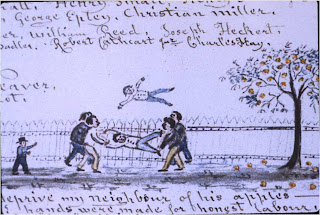 Henry
George Epley, Christian Miller.
er, William Reed, Joseph Heckert.
Sadler. Robert Cathcart for Charles Hay.
eaver,
ot.
deprive my neighbour of his apples
hands were made for honest labour,